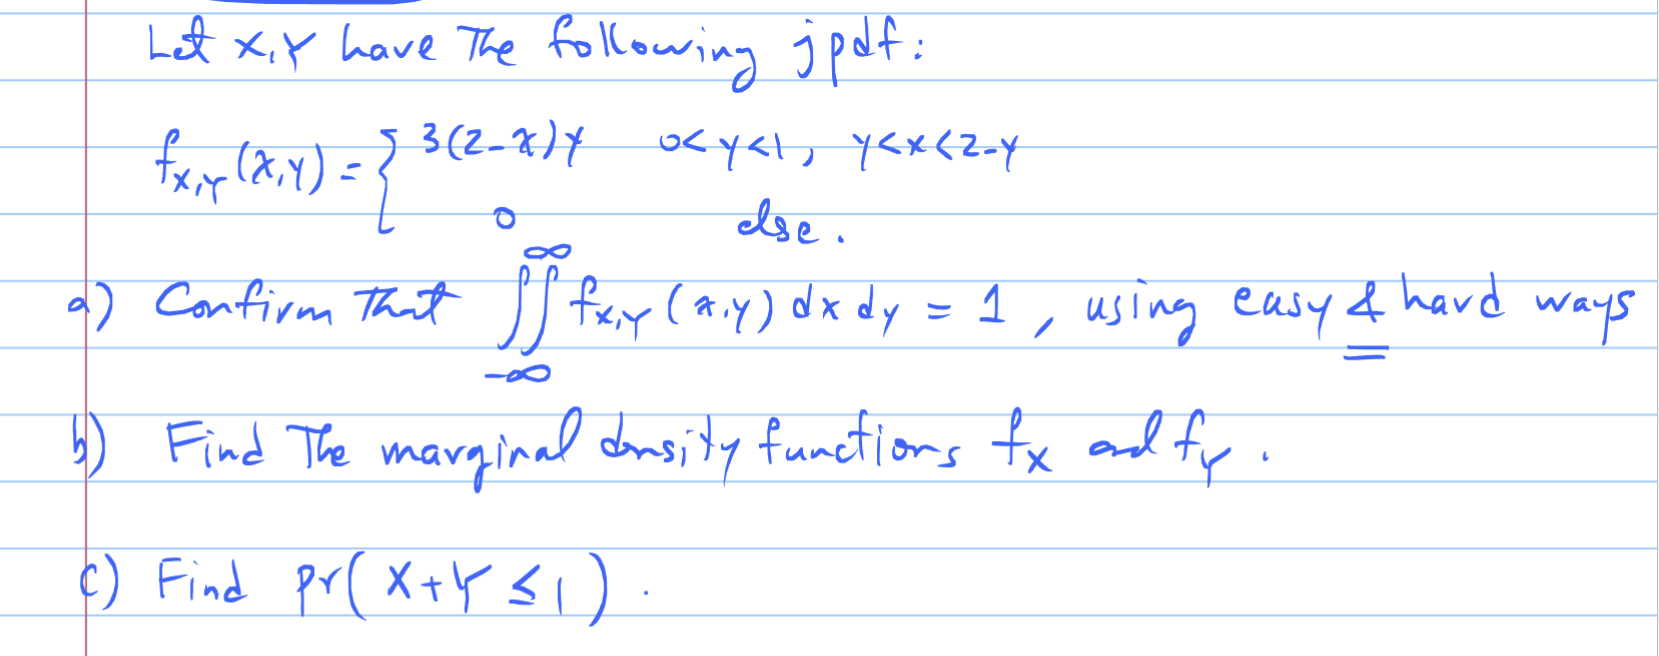 Let X,Y have The following jpdf:
f_{X,Y}(x,y) = { 3(2-x)y   0<y<1, y<x<2-y
0   else.
a) Confirm That ∫∫_{-∞}^{∞} f_{X,Y}(x,y) dx dy = 1, using easy & hard ways
b) Find The marginal density functions f_X and f_Y.
c) Find pr(X+Y ≤ 1).